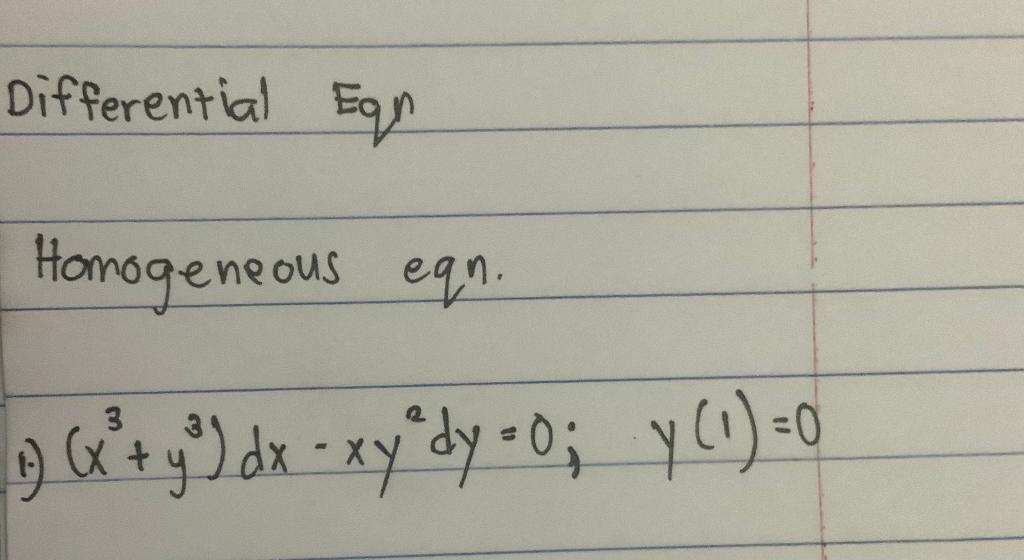 Differential Eqn
Homogeneous eqn.
1.) (x³ + y³) dx - xy² dy = 0; y(1) = 0